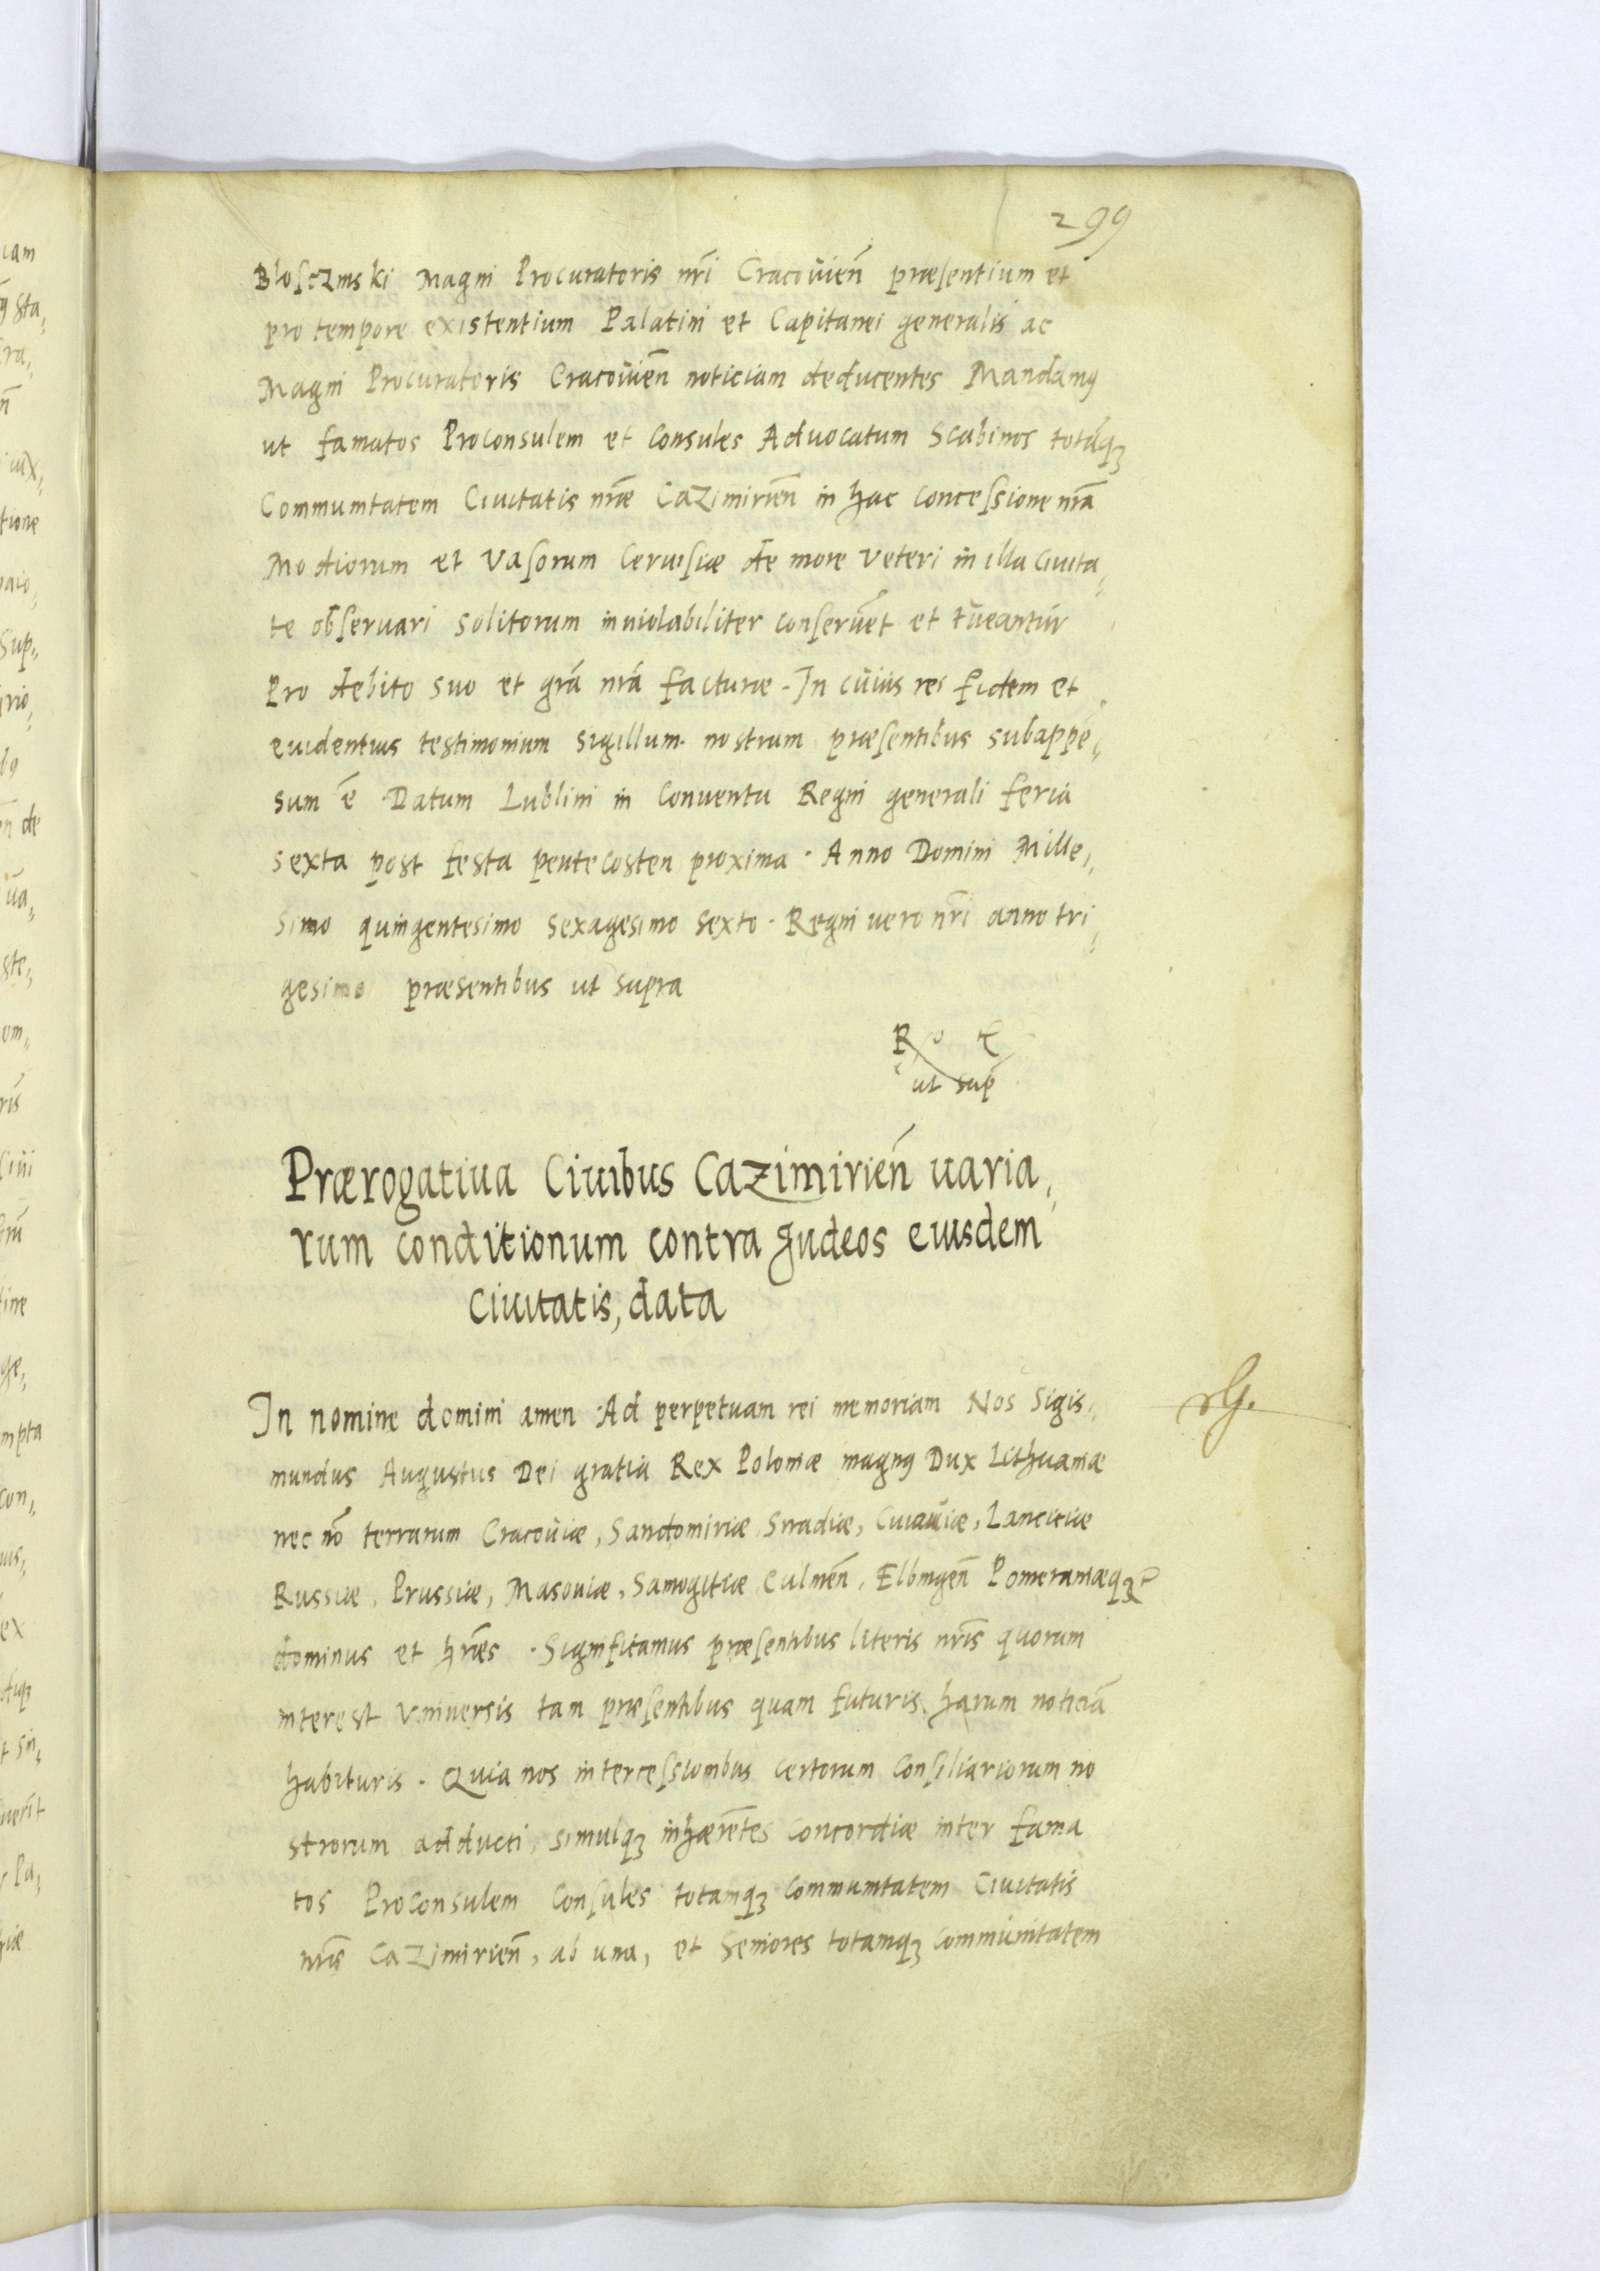 299
Blosczmski Magni Procuratoris nr̃i Cracovień præsentium et
pro tempore existentium Palatini et Capitanei generalis ac
Magni Procuratoris Cracovień noticiam deducentes Mandamꝰ
ut famatos Proconsulem et Consules Advocatum Scabinos totāqꝫ
Communitatem Civitatis nr̃æ Cazimirień in hac concessione nr̃a
Modiorum et Vasorum Cervisiæ de more veteri in illa Civita,,
te observari solitorum inviolabiliter conservēt et tueantur
Pro debito suo et gr̃a nr̃a facturæ. In cuius rei fidem et
evidentius testimonium sigillum nostrum præsentibus subappē,,
sum ē. Datum Lublini in Conventu Regni generali feria
sexta post festa pentecosten proxima. Anno Domini Mille,,
simo quingentesimo sexagesimo sexto. Regni vero nr̃i anno tri,,
gesimo præsentibus ut supra
ut sup
Prærogativa Civibus Cazimirień varia,,
rum conditionum contra Judeos eiusdem
Civitatis, data
In nomine domini amen. Ad perpetuam rei memoriam Nos Sigis,,
mundus Augustus Dei gratia Rex Poloniæ magnꝰ Dux Lithuaniæ
nec nō terrarum Cracoviæ, Sandomiriæ, Siradiæ, Cuiaviæ, Lanciciæ
Russiæ, Prussiæ, Masoviæ, Samogitiæ, Culmeń, Elbingeń Pomeraniæqꝫ
dominus et hr̃es. Significamus præsentibus literis nr̃is quorum
interest Vniversis tam præsentibus quam futuris, harum noticiā
habituris. Quia nos intercessionibus certorum Consiliariorum no
strorum adducti, simulqꝫ inhærētes Concordiæ inter fama
tos Proconsulem Consules totamqꝫ communitatem Civitatis
nr̃æ Cazimirień, ab una, et Seniores totamqꝫ communitatem